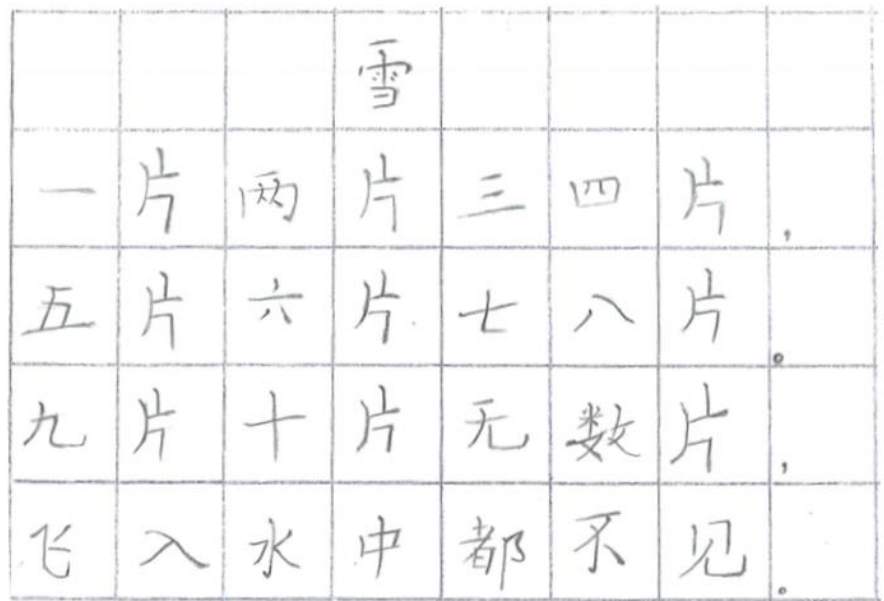 雪
一片两片三四片，
五片六片七八片。
九片十片无数片，
飞入水中都不见。